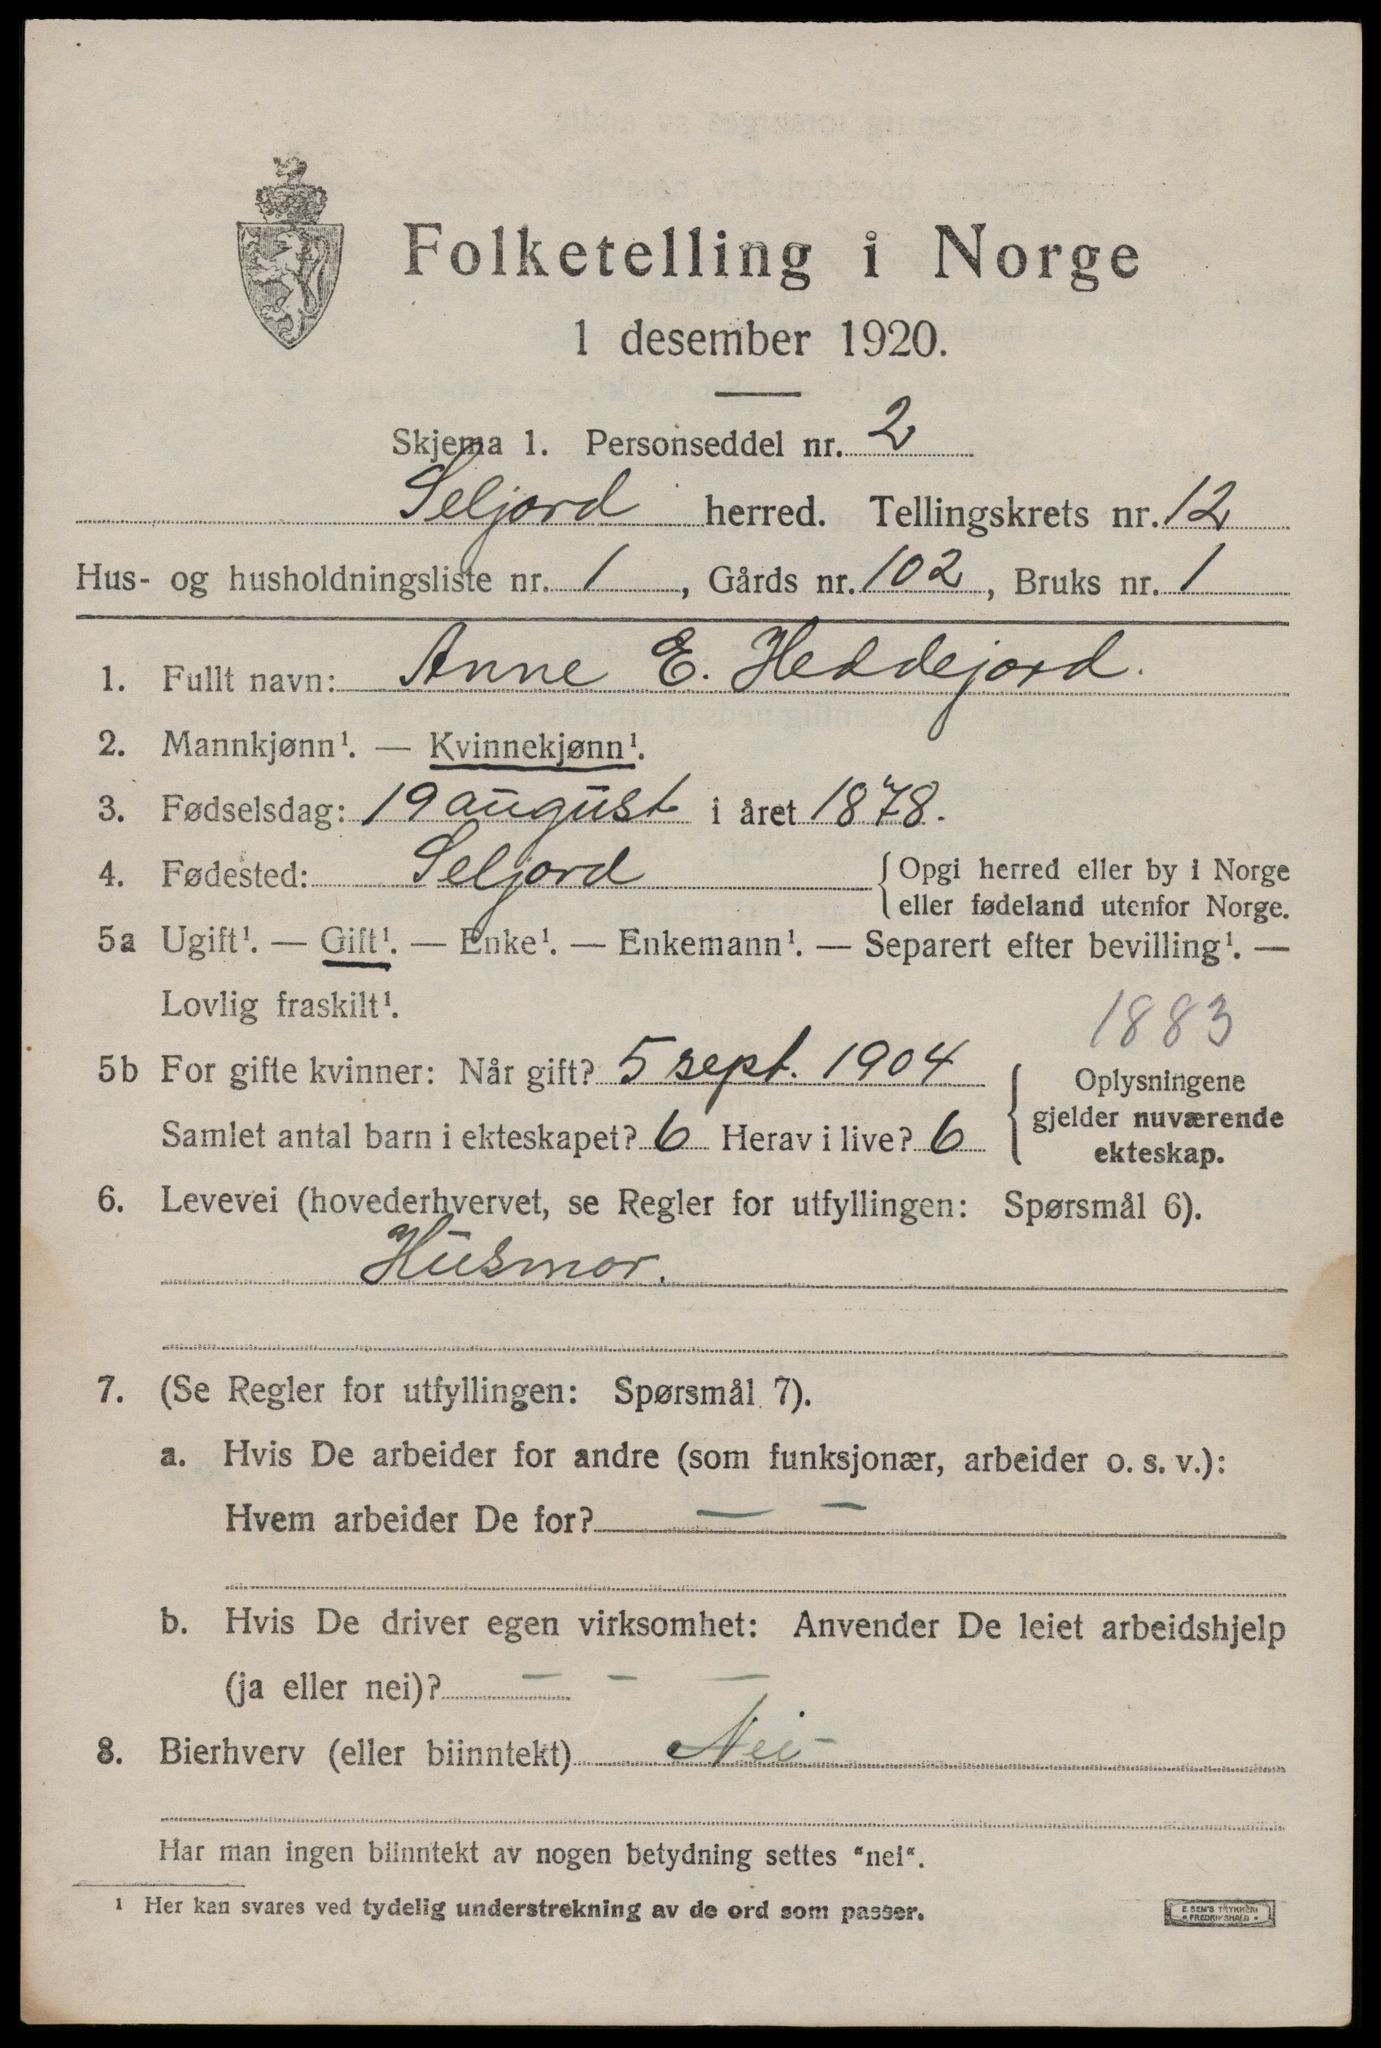 Folketelling i Norge
1 desember 1920.
Skjema 1. Personseddel nr. 2
Seljord herred. Tellingskrets nr. 12
Hus- og husholdningsliste nr. 1, Gårds nr. 102, Bruks nr. 1
1. Fullt navn: Anne E. Heddejord.
2. Mannkjønn¹. — Kvinnekjønn¹.
3. Fødselsdag: 19 august i året 1878.
4. Fødested: Seljord { Opgi herred eller by i Norge
eller fødeland utenfor Norge.
5a Ugift¹. — Gift¹. — Enke¹. — Enkemann¹. — Separert efter bevilling¹. —
Lovlig fraskilt¹.
1883
5b For gifte kvinner: Når gift? 5 sept. 1904
Samlet antal barn i ekteskapet? 6 Herav i live? 6
{ Oplysningene
gjelder nuværende
ekteskap.
6. Levevei (hovederhvervet, se Regler for utfyllingen: Spørsmål 6).
Husmor.
7. (Se Regler for utfyllingen: Spørsmål 7).
a. Hvis De arbeider for andre (som funksjonær, arbeider o. s. v.):
Hvem arbeider De for? — —
b. Hvis De driver egen virksomhet: Anvender De leiet arbeidshjelp
(ja eller nei)? — — —
8. Bierhverv (eller biinntekt) Nei
Har man ingen biinntekt av nogen betydning settes "nei".
¹ Her kan svares ved tydelig understrekning av de ord som passer.
E. SEM'S TRYKKERI
• FREDRIKSHALD •